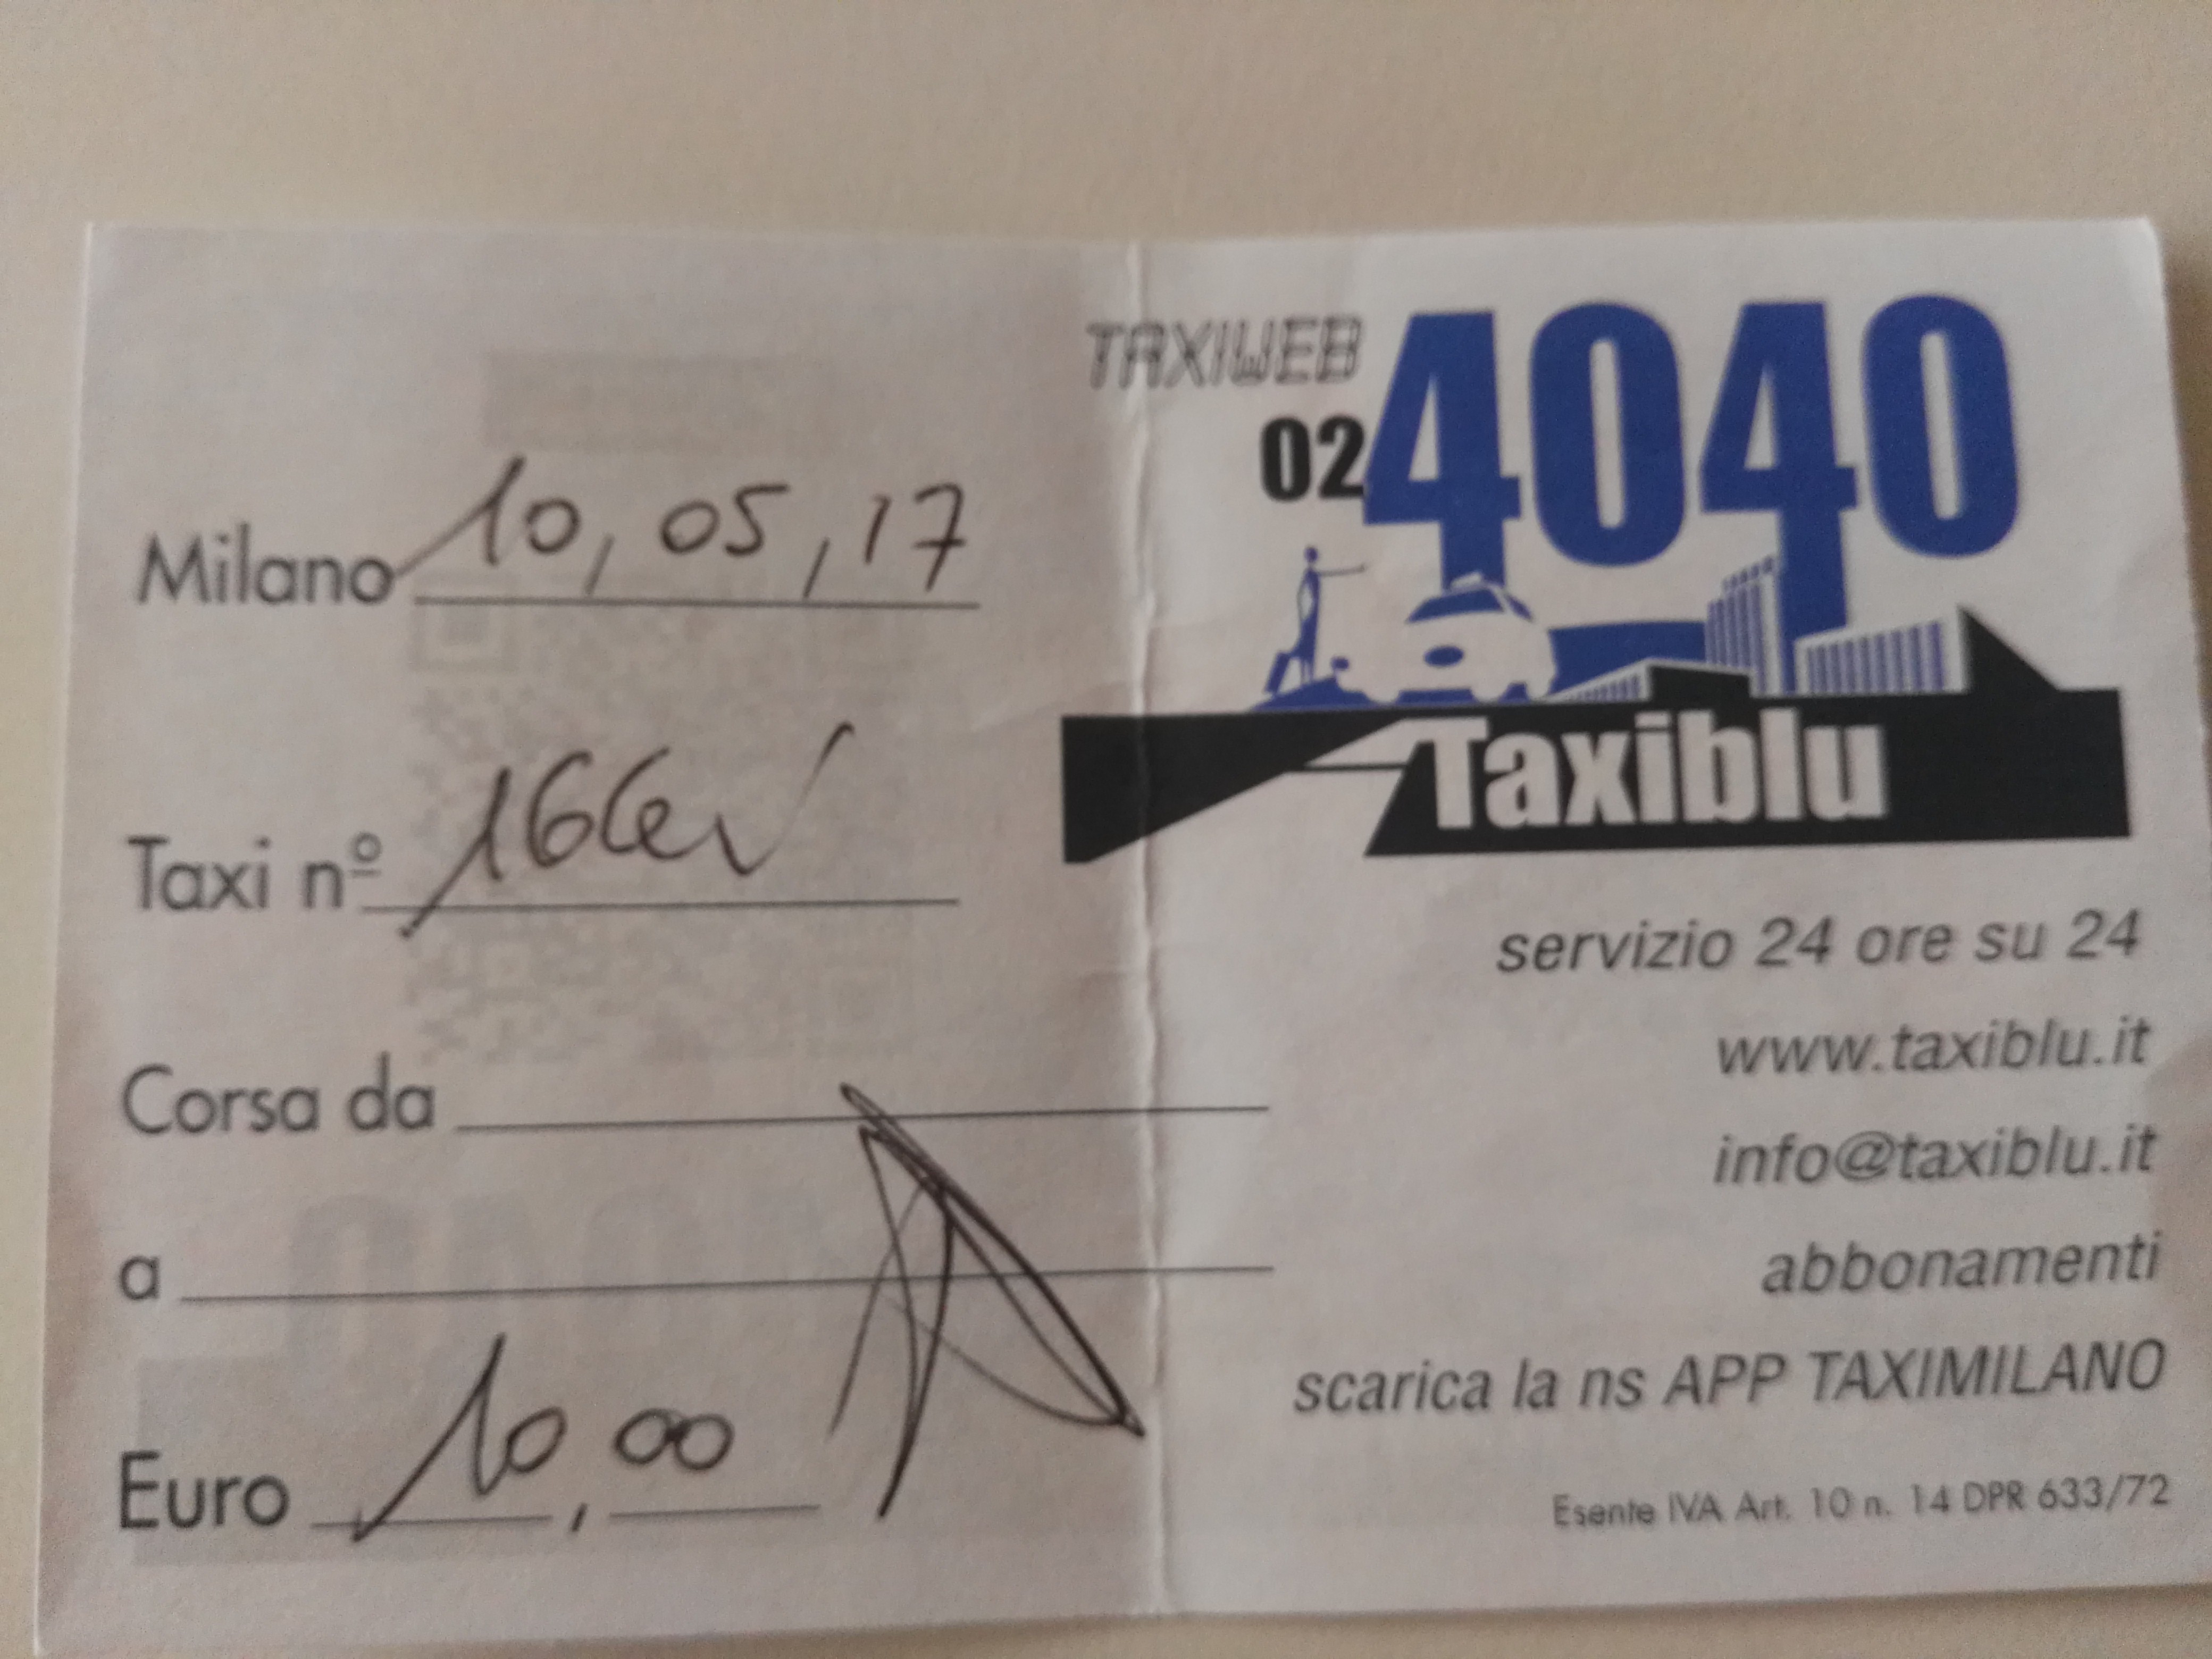 Milano 10, 05, 17
Taxi nº
Corsa da
a
Euro 10,00
TAXIWEB
02 4040
Taxiblu
servizio 24 ore su 24
www.taxiblu.it
info@taxiblu.it
abbonamenti
scarica la ns APP TAXIMILANO
Esente IVA Art. 10 n. 14 DPR 633/72